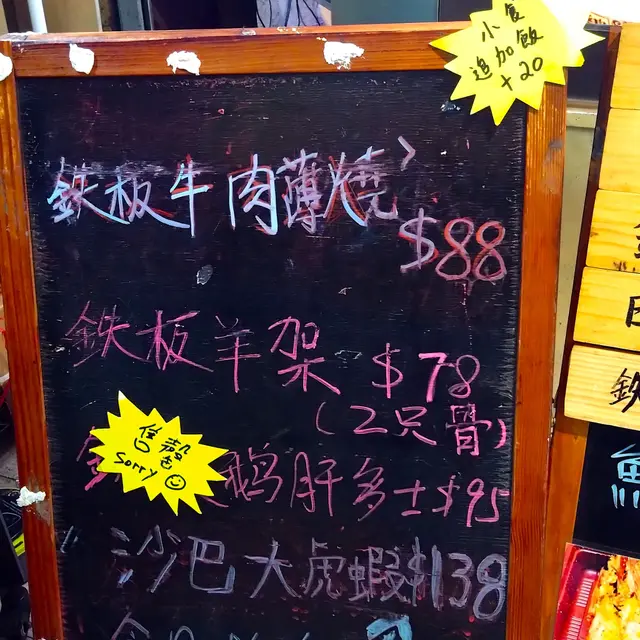 小食
追加飯
+20
鉄板牛肉薄燒
$88
鉄板羊架 $78
(2只骨)
售罄
sorry
鵝肝多士$95
沙巴大虎蝦$138